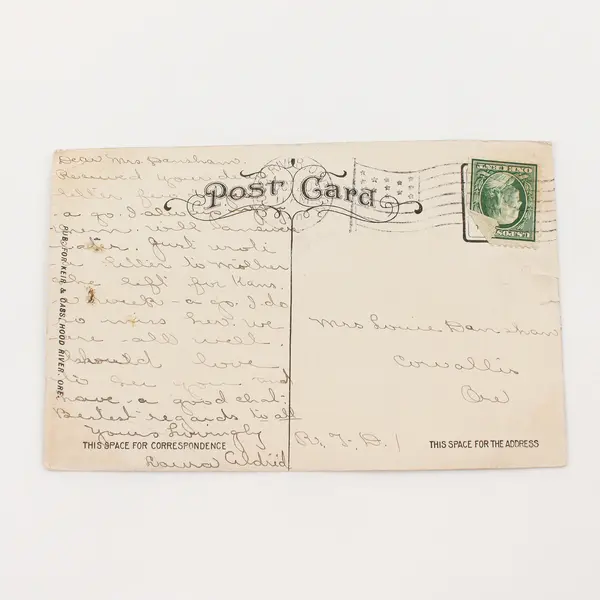 Dear Mrs Danshaw.
Received your
letter
a go. I also
them. will answer
later. Just wrote
a letter to Mother
she left for Kans.
a week a go. I do
so miss her. We
are all well.
I should love
to see you and
have a good chat.
Bestest regards to all
Yours Lovingly
Laura Aldrid
THIS SPACE FOR CORRESPONDENCE
PUB. FOR KEIR & CASS, HOOD RIVER, ORE.
Post Card
ONE CENT
U.S. POS
Mrs Louie Danshaw
Corvallis
Ore
R. F. D. 1
THIS SPACE FOR THE ADDRESS